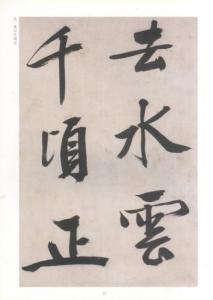 去水雲
千頃正